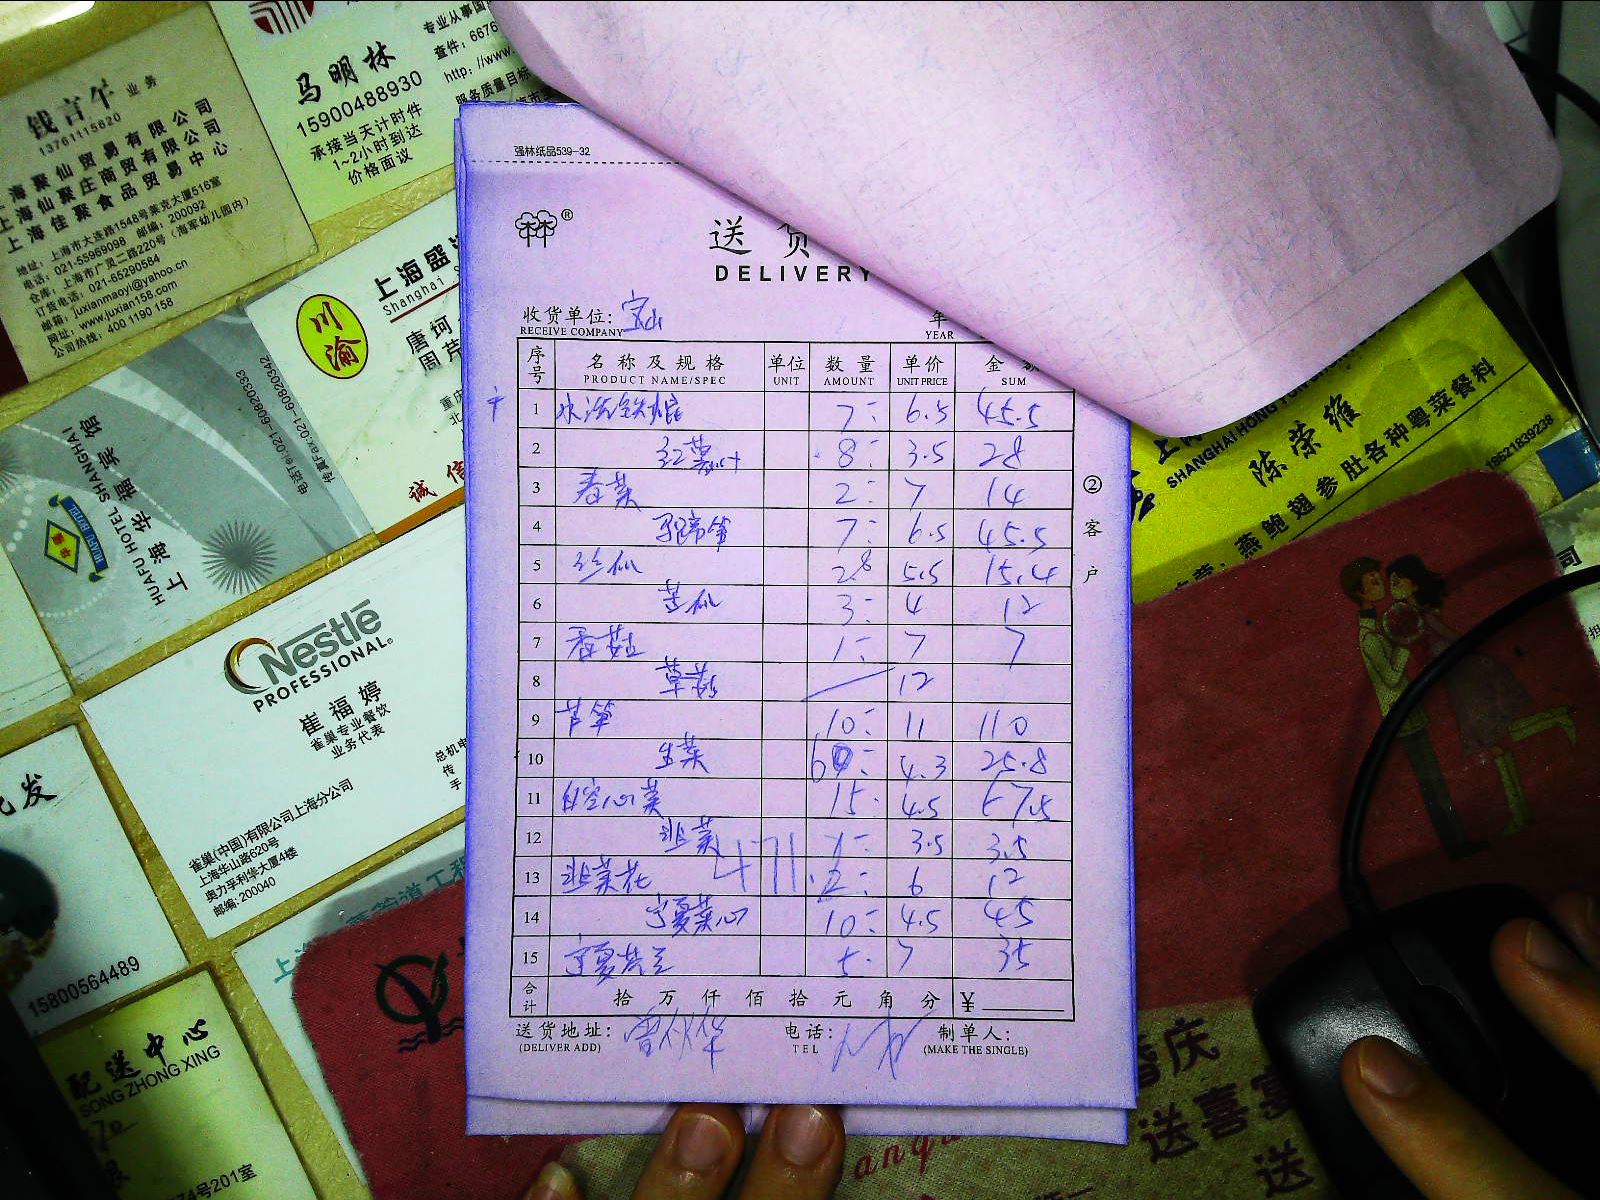 钱言午 业务
13761115820
上海聚仙贸易有限公司
上海仙聚庄商贸有限公司
上海佳聚食品贸易中心
地址：上海市大连路1548号莱克大厦516室
电话：021-55969098 邮编：200092
仓库：上海市广灵二路220号（海军幼儿园内）
订货电话：021-65290584
邮箱：juxianmaoyi@yahoo.cn
网址：www.juxian158.com
公司热线：400 1190 158
马明林
15900488930
承接当天计时件
1~2小时到达
价格面议
专业从事国
查件：6676
http://www.
服务质量目标
川渝
上海盛
Shanghai S
唐珂
周芹
重庆
北
诚信
上海华福宾馆
HUAFU HOTEL SHANGHAI
HUAFU HOTEL
电话Tel:021-60820393
传真Fax:021-60820342
Nestlé
PROFESSIONAL
崔福婷
雀巢专业餐饮
业务代表
总机电
传
手
雀巢(中国)有限公司上海分公司
上海华山路620号
奥力孚利华大厦4楼
邮编:200040
批发
15800564489
配送中心
SONG ZHONG XING
号201室
强林纸品539-32
林®
送货
DELIVERY
收货单位：宝山
RECEIVE COMPANY
年
YEAR
序号 名称及规格 单位 数量 单价 金额
PRODUCT NAME/SPEC UNIT AMOUNT UNIT PRICE SUM
1 7 6.5 45.5
2 红薯 8 3.5 28
3 春菜 2 7 14
4 7 6.5 45.5
5 丝瓜 2.8 5.5 15.4
6 苦瓜 3 4 12
7 香菇 1 7 7
8 草菇 12
9 芦笋 10 11 110
10 生菜 6 4.3 25.8
11 空心菜 15 4.5 67.5
12 韭菜 1 3.5 3.5
13 韭菜花 2 6 12
471.2
14 宁夏菜心 10 4.5 45
15 宁夏芥兰 5 7 35
合计 拾万仟佰拾元角分 ￥
送货地址： 电话： 制单人：
(DELIVER ADD) TEL (MAKE THE SINGLE)
②客户
上海
SHANGHAI HONG
陈荣维
燕鲍翅参肚各种粤菜餐料
19621839238
司
婚庆
送喜宴
送